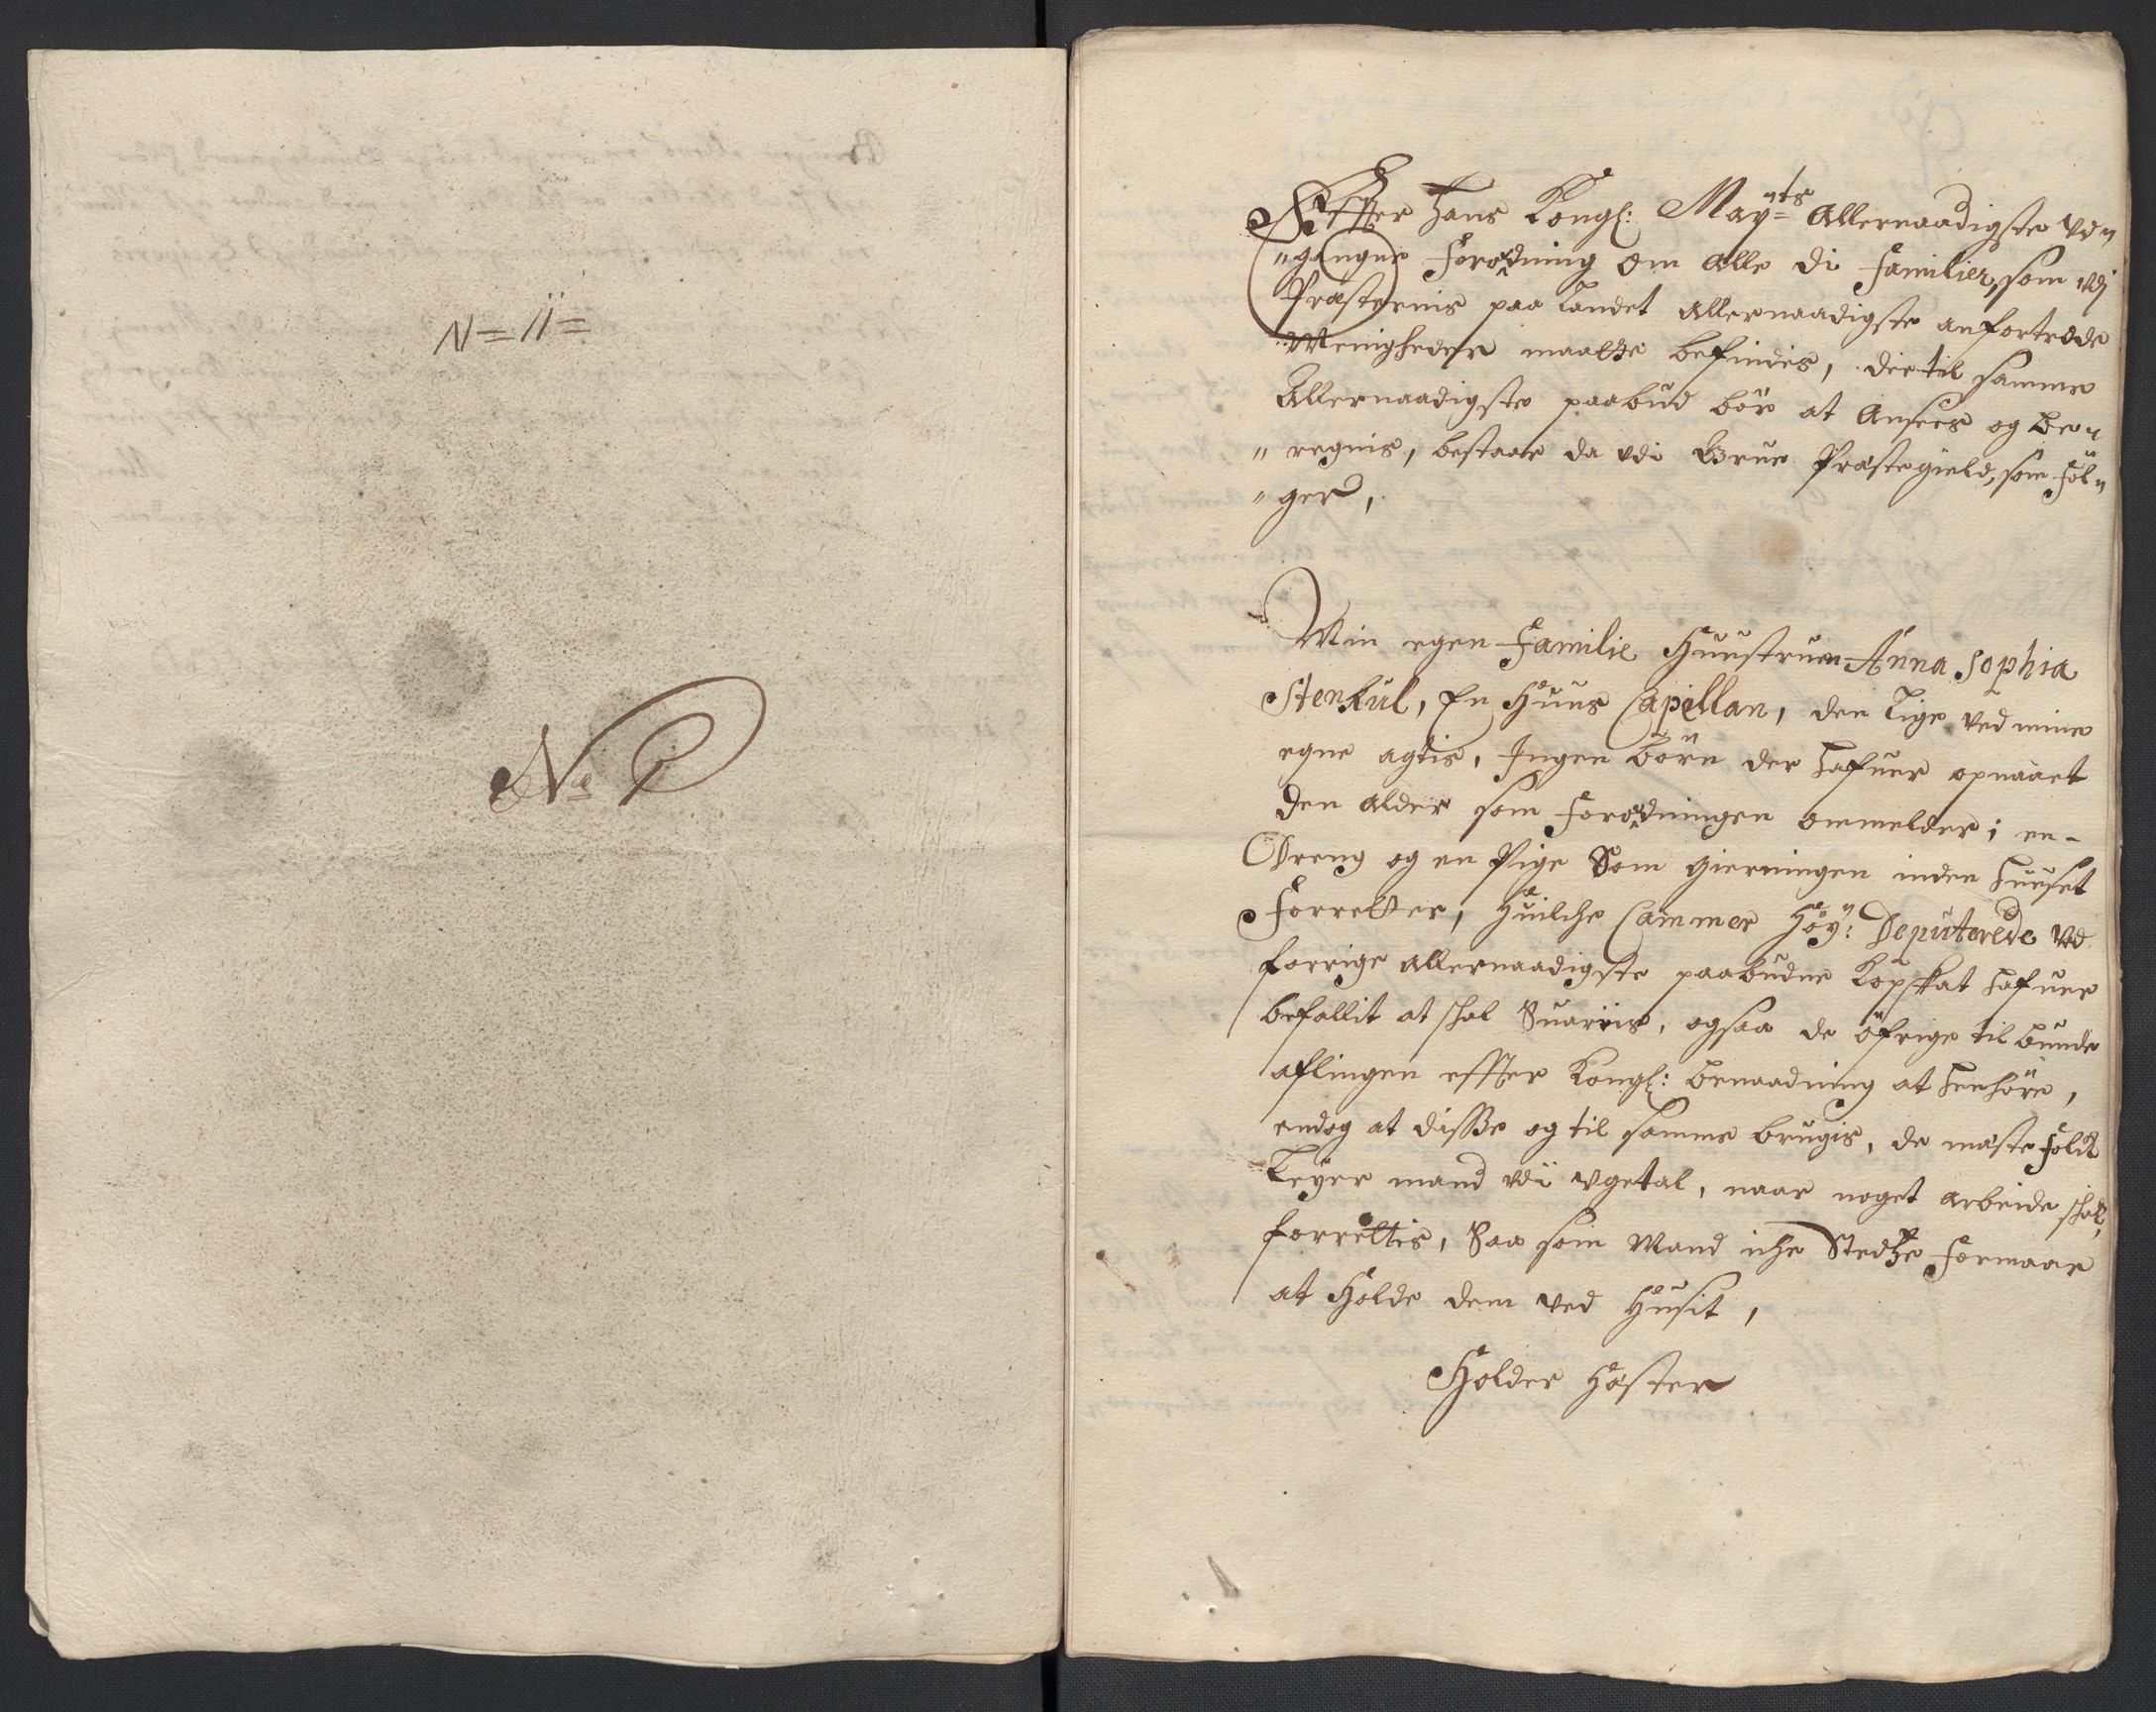 N= 11=
No 1
Effter Hans Kongl: May:ts Allernaadigste Vd„
„gangne Forordning om Alle di Familier, som udj
Præsternis paa Landet Allernaadigste anfortrode
Menigheder maatte befindis, der til samme
Allernaadigste paabud bør at Ansees og be„
„regnis, bestaar da udi Grue Præstegield, som Føl„
„ger,
Min egen Familie Huustruen Anna Sophia
Stenkul, En Huus Capellan, der lige ved mine
egne agtis, Ingen børn der hafuer opnaaet
den alder som Forordningen ommelder; en
Dreng og en Pige Som gierningen inden huuset
Forretter, Huilche Cammer Høy: Deputerede ved
forrige allernaadigste paabudne Kopskat hafuer
befallit at skal Suaris, ogsaa de øfrige til bunde
aflingen effter Kongl: benaadning at henhøre,
endog at disse og til samme brugis, de mæste Folch
Leyer mand udi ugetal, naar noget arbeide skal
forrettis, Saa som Mand iche Stedtze Formaar
at Holde dem ved Husit,
Holder Hæster